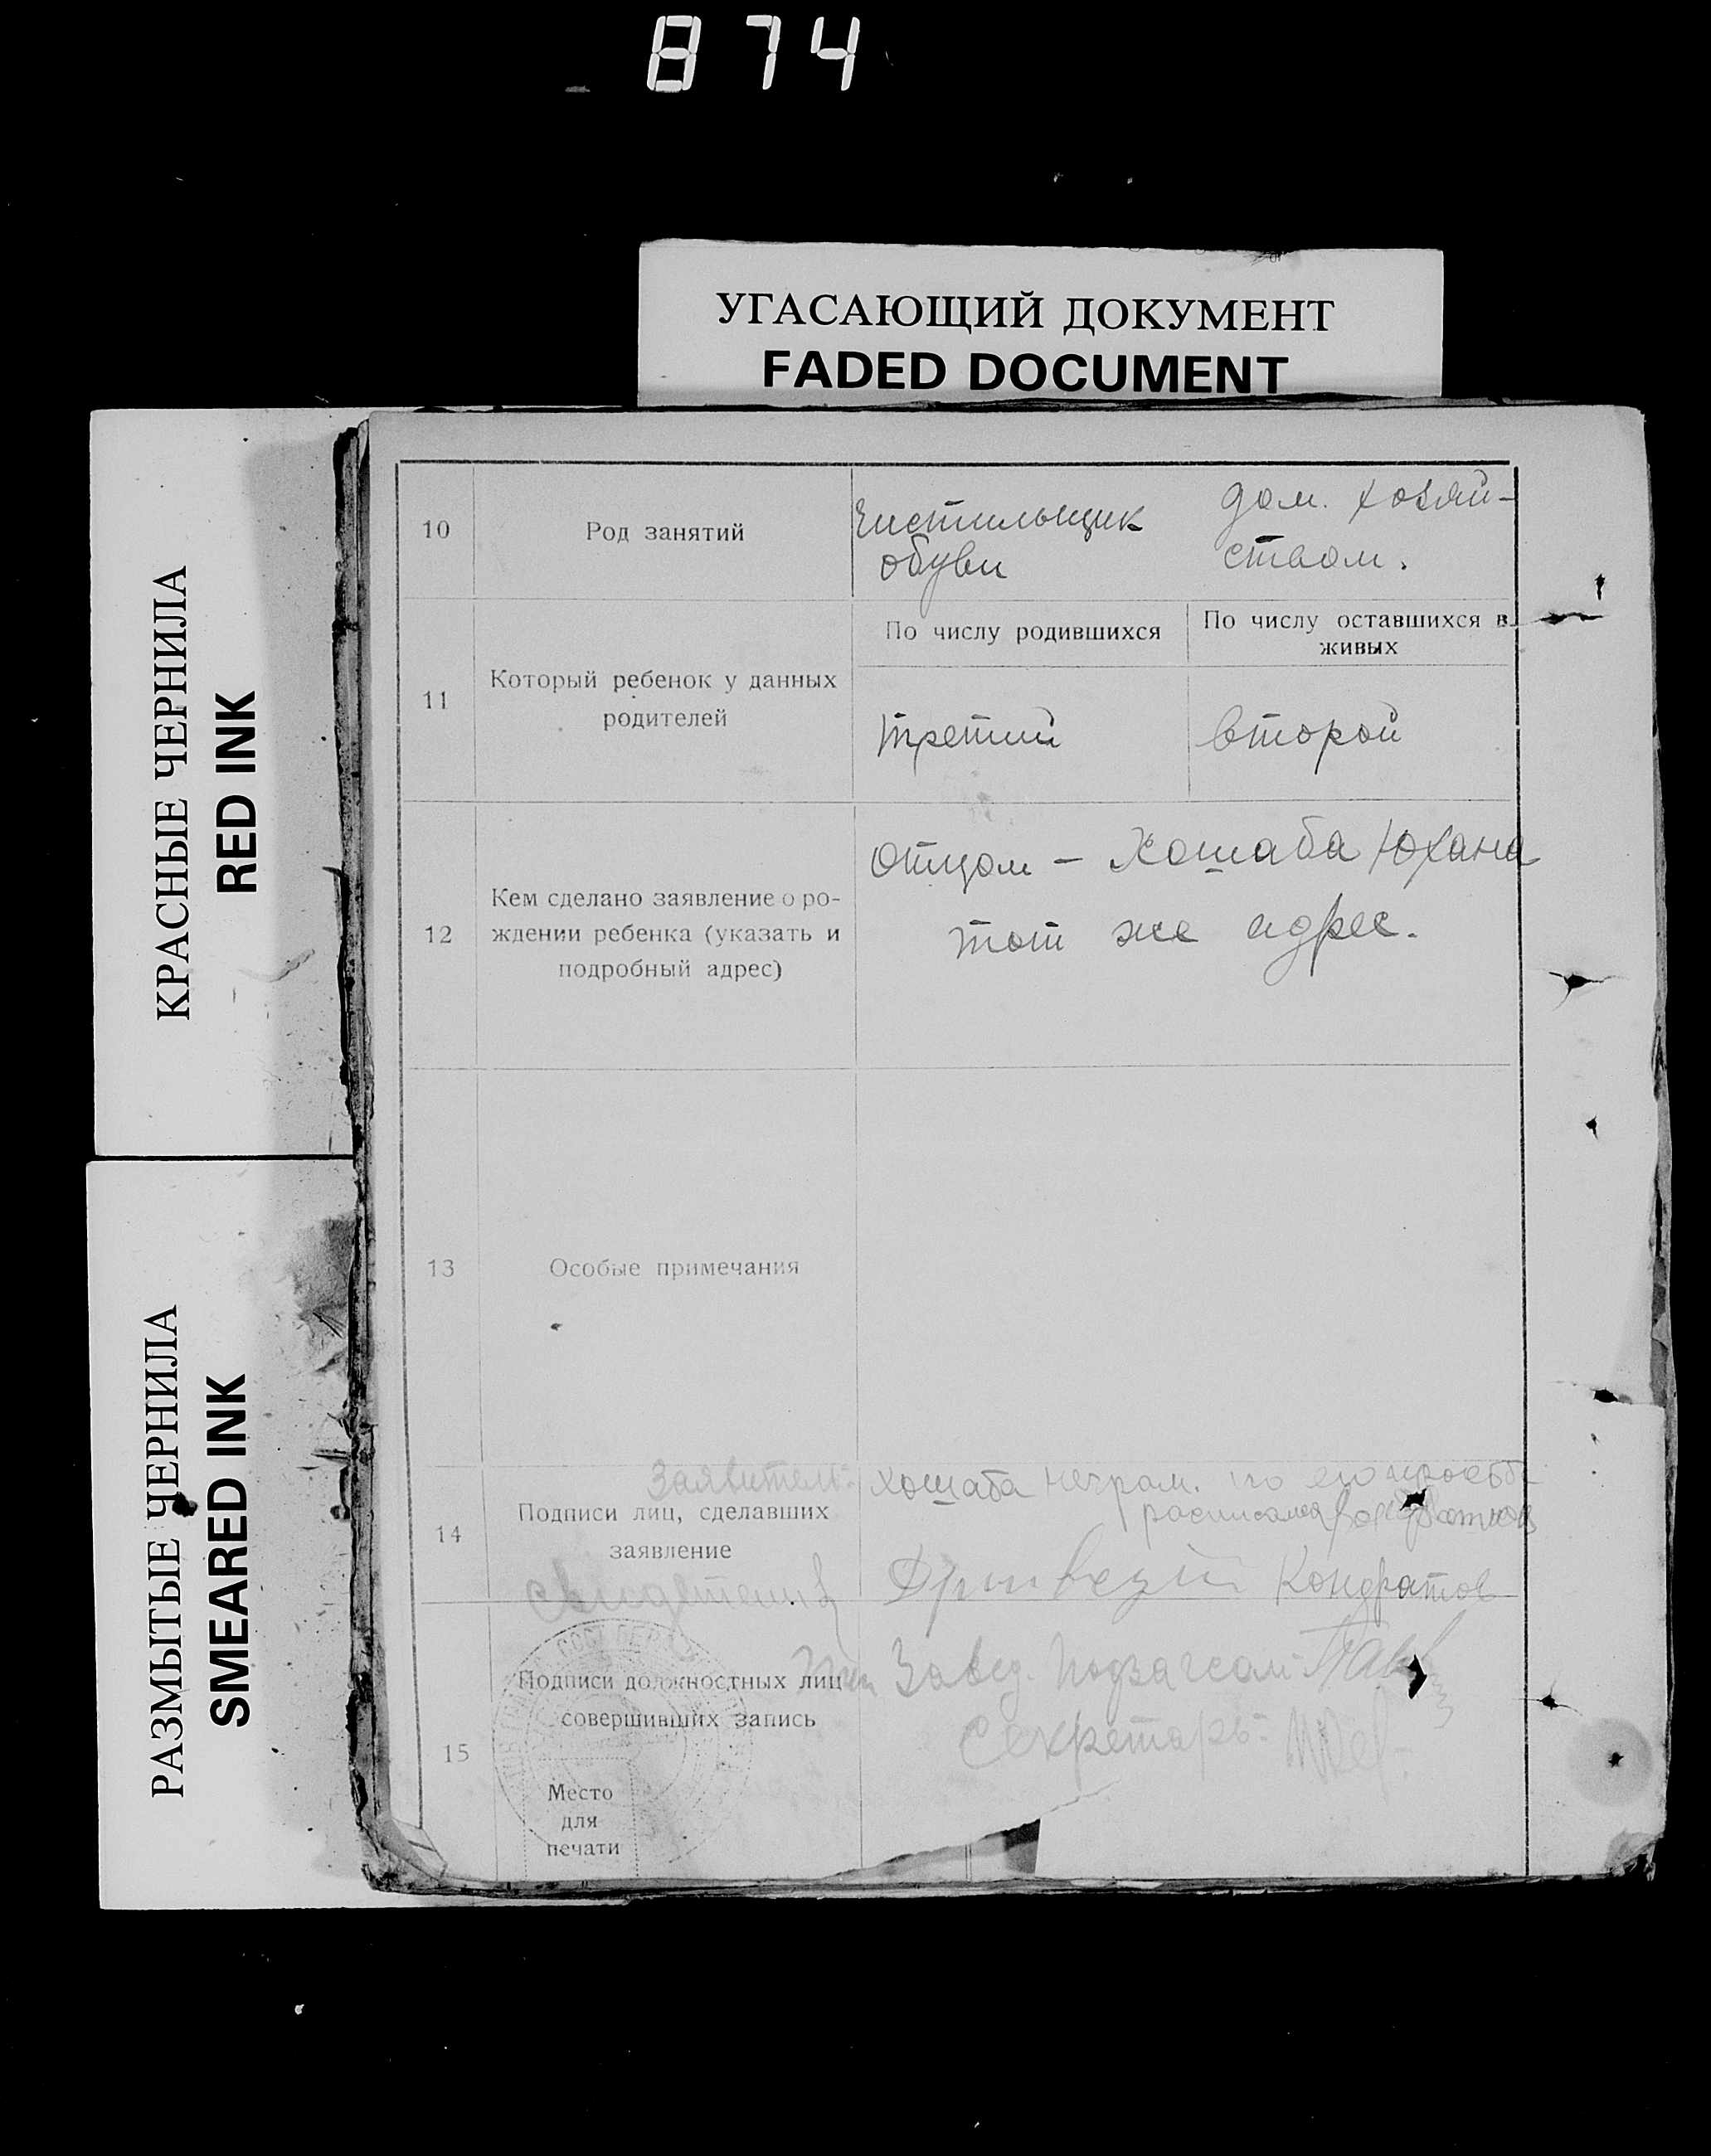 874
УГАСАЮЩИЙ ДОКУМЕНТ
FADED DOCUMENT
КРАСНЫЕ ЧЕРНИЛА
RED INK
РАЗМЫТЫЕ ЧЕРНИЛА
SMEARED INK
10
Род занятий
Чистильщик
обуви
дом. хозяй-
ством.
11
Который ребенок у данных
родителей
По числу родившихся
По числу оставшихся в
живых
третий
второй
12
Кем сделано заявление о ро-
ждении ребенка (указать и
подробный адрес)
Отцом – Хошаба Юхана
тот же адрес.
13
Особые примечания
Заявитель:
14
Подписи лиц, сделавших
заявление
Хошаба неграм. по его просьбе
расписался
Кондратов
15
Подписи должностных лиц
совершивших запись
Завед. Подзагсом
Секретарь
Место
для
печати